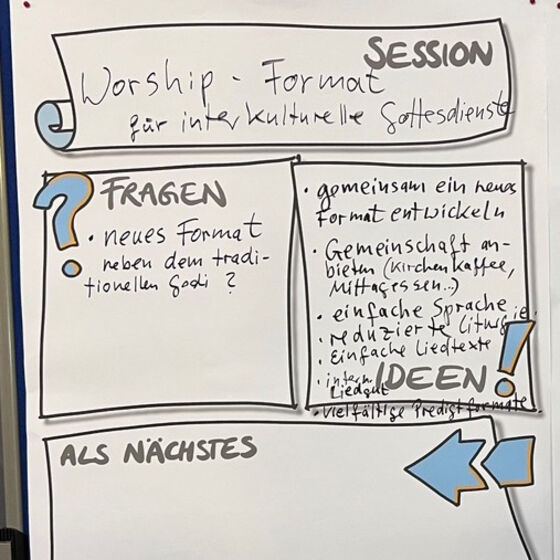 SESSION
Worship - Format
für interkulturelle Gottesdienste
FRAGEN
• neues Format
neben dem tradi-
tionellen Godi ?
• gemeinsam ein neues
Format entwickeln
• Gemeinschaft an-
bieten (Kirchenkaffee,
Mittagessen..)
• einfache Sprache
• reduzierte Liturgie
• Einfache Liedtexte
• intern.
Liedgut
IDEEN
• vielfältige Predigtformate
ALS NÄCHSTES